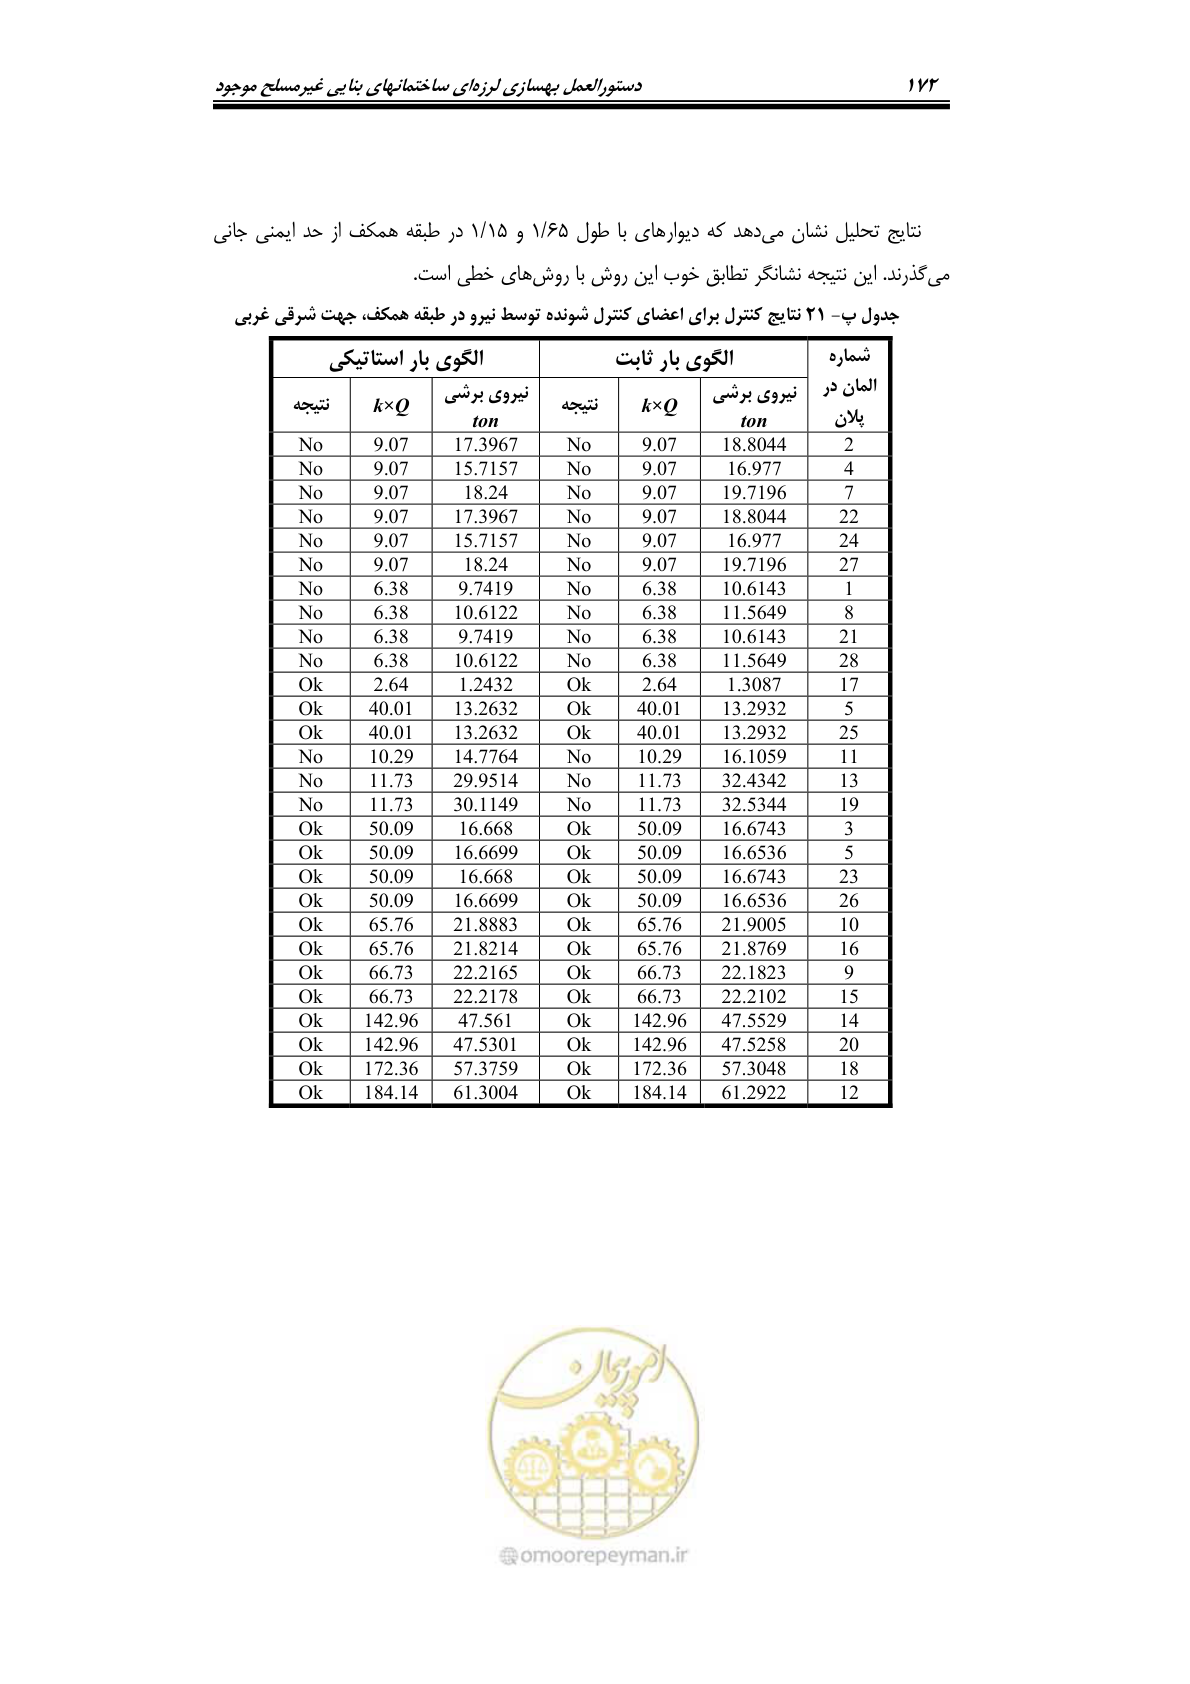 ۱۷۲ دستورالعمل بهسازی لرزه‌ای ساختمانهای بنایی غیرمسلح موجود
نتایج تحلیل نشان می‌دهد که دیوارهای با طول ۱/۶۵ و ۱/۱۵ در طبقه همکف از حد ایمنی جانی
می‌گذرند. این نتیجه نشانگر تطابق خوب این روش با روش‌های خطی است.
جدول پ- ۲۱ نتایج کنترل برای اعضای کنترل شونده توسط نیرو در طبقه همکف، جهت شرقی غربی
شماره المان در پلان الگوی بار ثابت الگوی بار استاتیکی
نیروی برشی ton k×Q نتیجه نیروی برشی ton k×Q نتیجه
2 18.8044 9.07 No 17.3967 9.07 No
4 16.977 9.07 No 15.7157 9.07 No
7 19.7196 9.07 No 18.24 9.07 No
22 18.8044 9.07 No 17.3967 9.07 No
24 16.977 9.07 No 15.7157 9.07 No
27 19.7196 9.07 No 18.24 9.07 No
1 10.6143 6.38 No 9.7419 6.38 No
8 11.5649 6.38 No 10.6122 6.38 No
21 10.6143 6.38 No 9.7419 6.38 No
28 11.5649 6.38 No 10.6122 6.38 No
17 1.3087 2.64 Ok 1.2432 2.64 Ok
5 13.2932 40.01 Ok 13.2632 40.01 Ok
25 13.2932 40.01 Ok 13.2632 40.01 Ok
11 16.1059 10.29 No 14.7764 10.29 No
13 32.4342 11.73 No 29.9514 11.73 No
19 32.5344 11.73 No 30.1149 11.73 No
3 16.6743 50.09 Ok 16.668 50.09 Ok
5 16.6536 50.09 Ok 16.6699 50.09 Ok
23 16.6743 50.09 Ok 16.668 50.09 Ok
26 16.6536 50.09 Ok 16.6699 50.09 Ok
10 21.9005 65.76 Ok 21.8883 65.76 Ok
16 21.8769 65.76 Ok 21.8214 65.76 Ok
9 22.1823 66.73 Ok 22.2165 66.73 Ok
15 22.2102 66.73 Ok 22.2178 66.73 Ok
14 47.5529 142.96 Ok 47.561 142.96 Ok
20 47.5258 142.96 Ok 47.5301 142.96 Ok
18 57.3048 172.36 Ok 57.3759 172.36 Ok
12 61.2922 184.14 Ok 61.3004 184.14 Ok
امور پیمان
@omoorepeyman.ir